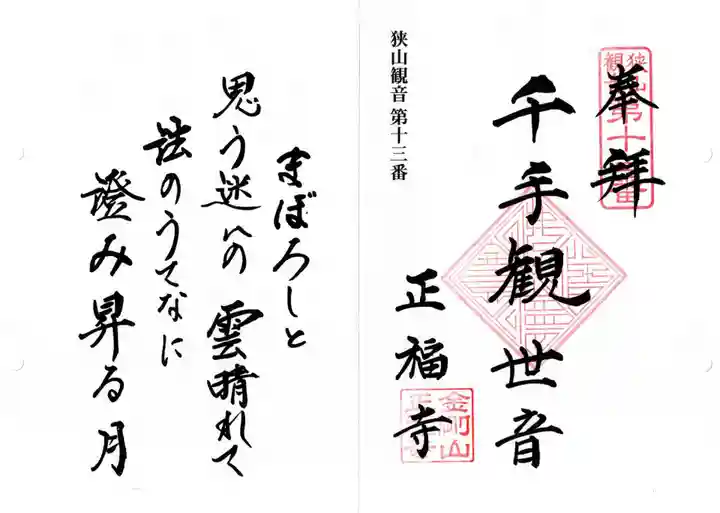 奉拝
狭山観音第十三番
千手観世音
正福寺
金剛山
狭山観音 第十三番
まぼろしと
思う迷いの 雲晴れて
法のうてなに
澄み昇る月